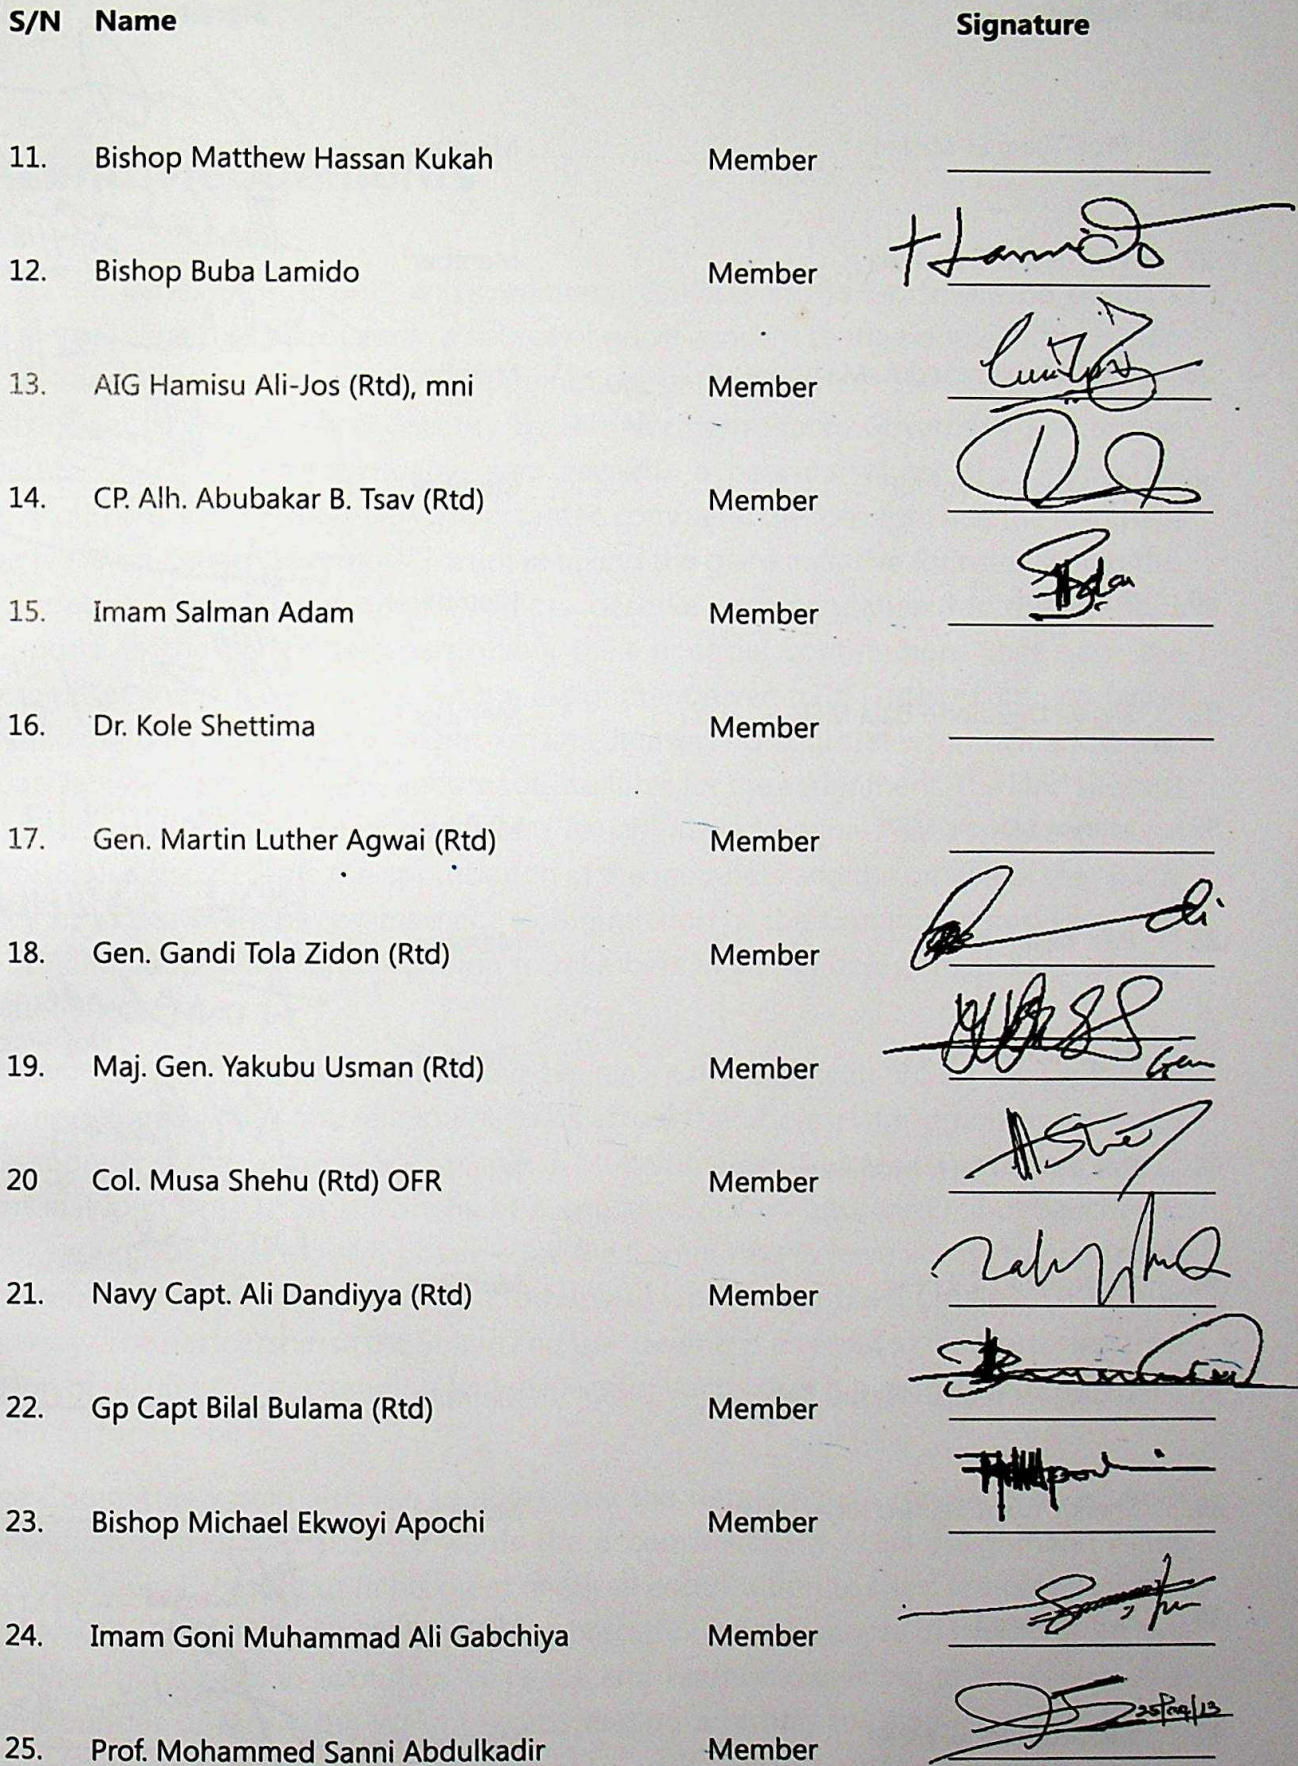 S/N Name Signature
11. Bishop Matthew Hassan Kukah Member
12. Bishop Buba Lamido Member
13. AIG Hamisu Ali-Jos (Rtd), mni Member
14. CP. Alh. Abubakar B. Tsav (Rtd) Member
15. Imam Salman Adam Member
16. Dr. Kole Shettima Member
17. Gen. Martin Luther Agwai (Rtd) Member
18. Gen. Gandi Tola Zidon (Rtd) Member
19. Maj. Gen. Yakubu Usman (Rtd) Member Gen
20 Col. Musa Shehu (Rtd) OFR Member
21. Navy Capt. Ali Dandiyya (Rtd) Member
22. Gp Capt Bilal Bulama (Rtd) Member
23. Bishop Michael Ekwoyi Apochi Member
24. Imam Goni Muhammad Ali Gabchiya Member
25. Prof. Mohammed Sanni Abdulkadir Member